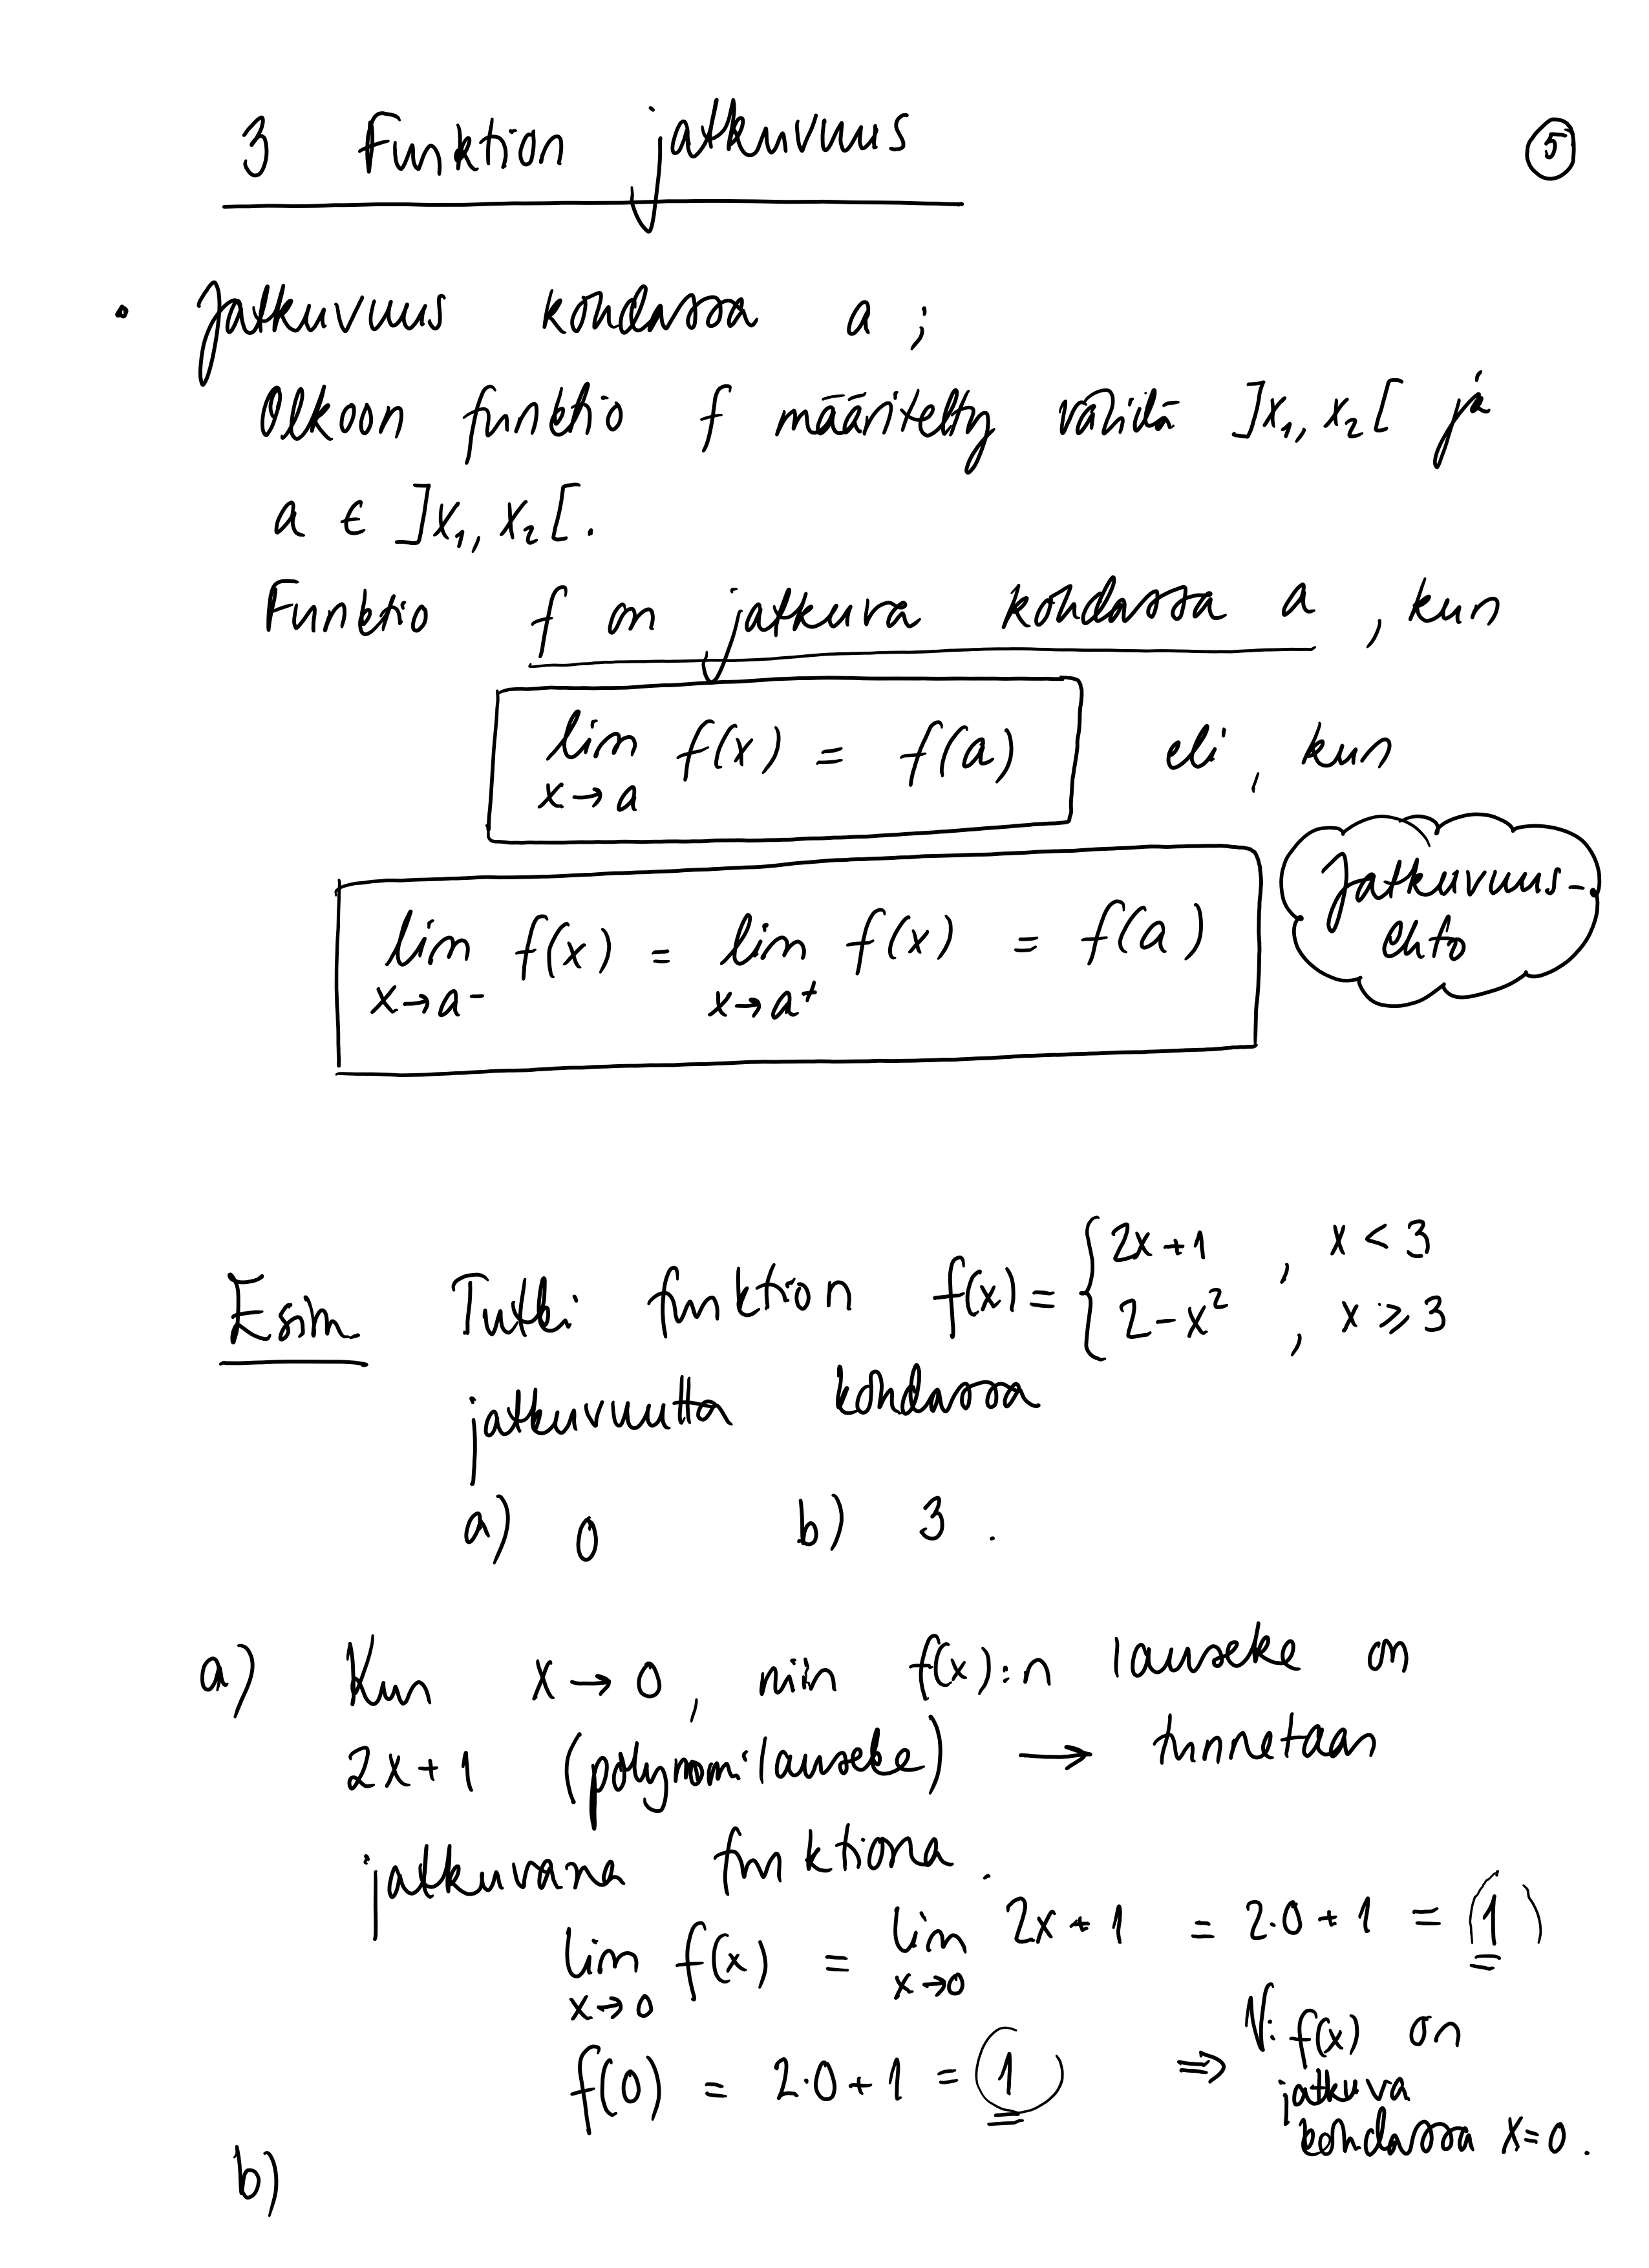 3 Funktion jatkuvuus
5
• Jatkuvuus kohdassa a ;
Olkoon funktio f määritelty välillä ]x₁, x₂[ ja
a ∈ ]x₁, x₂[.
Funktio f on jatkuva kohdassa a , kun
lim f(x) = f(a) eli, kun
x→a
Jatkuvuus-
ehto
lim f(x) = lim f(x) = f(a)
x→a- x→a+
Esim Tutki funktion f(x) = { 2x+1 , x < 3
2-x² , x ≥ 3
jatkuvuutta kohdassa
a) 0 b) 3 .
a) Kun x→0, niin f(x):n lauseke on
2x+1 (polynomilauseke) → tunnetaan
jatkuvana funktiona.
lim f(x) = lim 2x+1 = 2·0+1 = 1
x→0 x→0
f(0) = 2·0+1 = 1 ⇒ V: f(x) on
jatkuva
kohdassa x=0.
b)